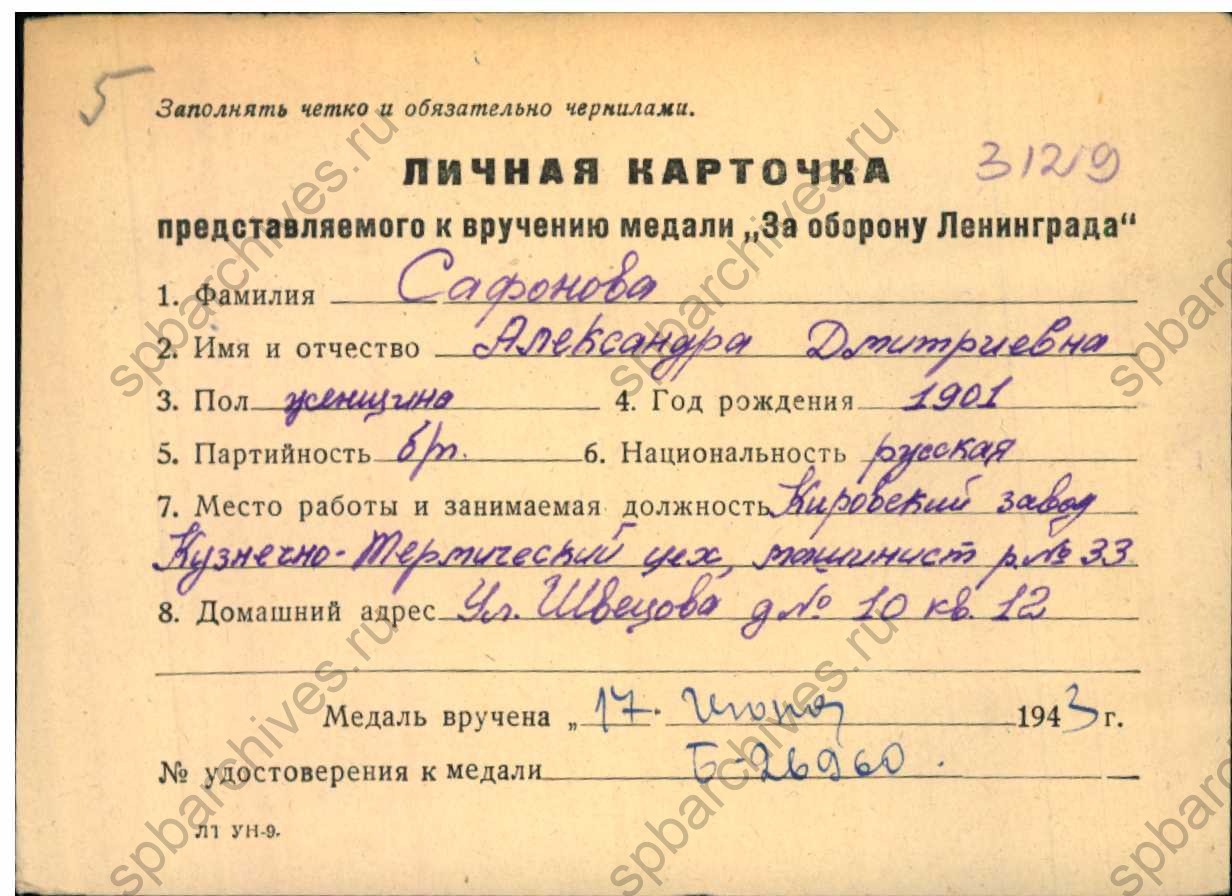 5
Заполнять четко и обязательно чернилами.
ЛИЧНАЯ КАРТОЧКА 31219
представляемого к вручению медали „За оборону Ленинграда“
1. Фамилия Сафонова
2. Имя и отчество Александра Дмитриевна
3. Пол женщина 4. Год рождения 1901
5. Партийность б/п. 6. Национальность русская
7. Место работы и занимаемая должность Кировский завод
Кузнечно-Термический цех, машинист р.№ 33
8. Домашний адрес Ул. Швецова д№ 10 кв. 12
Медаль вручена „17. Июня 1943 г.
№ удостоверения к медали Б-26960.
ЛТ УН-9.
spbarchives.ru